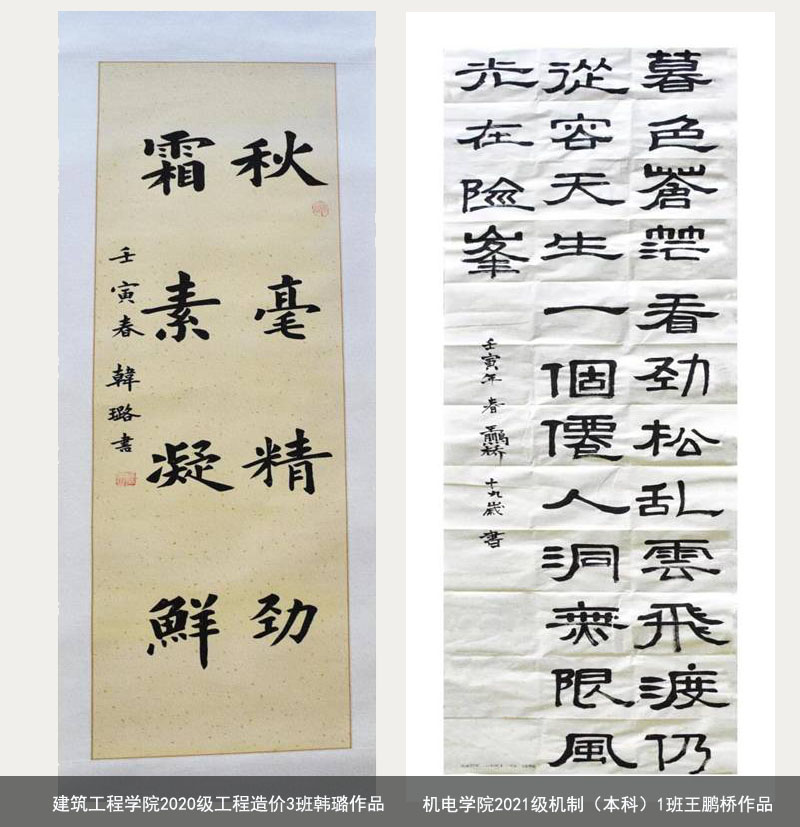 秋毫精劲
霜素凝鮮
壬寅春韓璐書
暮色蒼茫看劲松乱雲飛渡仍
從容天生一個僊人洞無限風
光在险峯
壬寅年 春 鵬桥 十九歲 書
建筑工程学院2020级工程造价3班韩璐作品
机电学院2021级机制（本科）1班王鹏桥作品